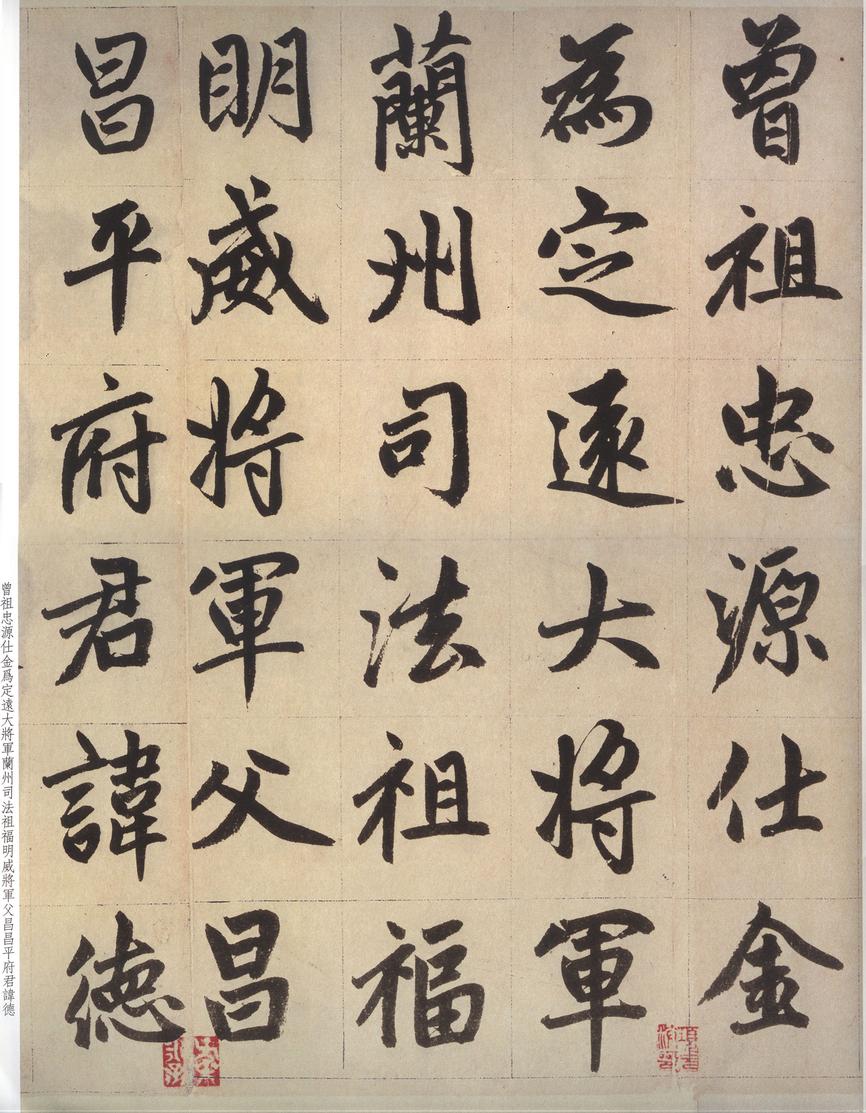 曾祖忠源仕金
為定遠大將軍
蘭州司法祖福
明威將軍父昌
昌平府君諱德
曾祖忠源仕金爲定遠大將軍蘭州司法祖福明威將軍父昌昌平府君諱德